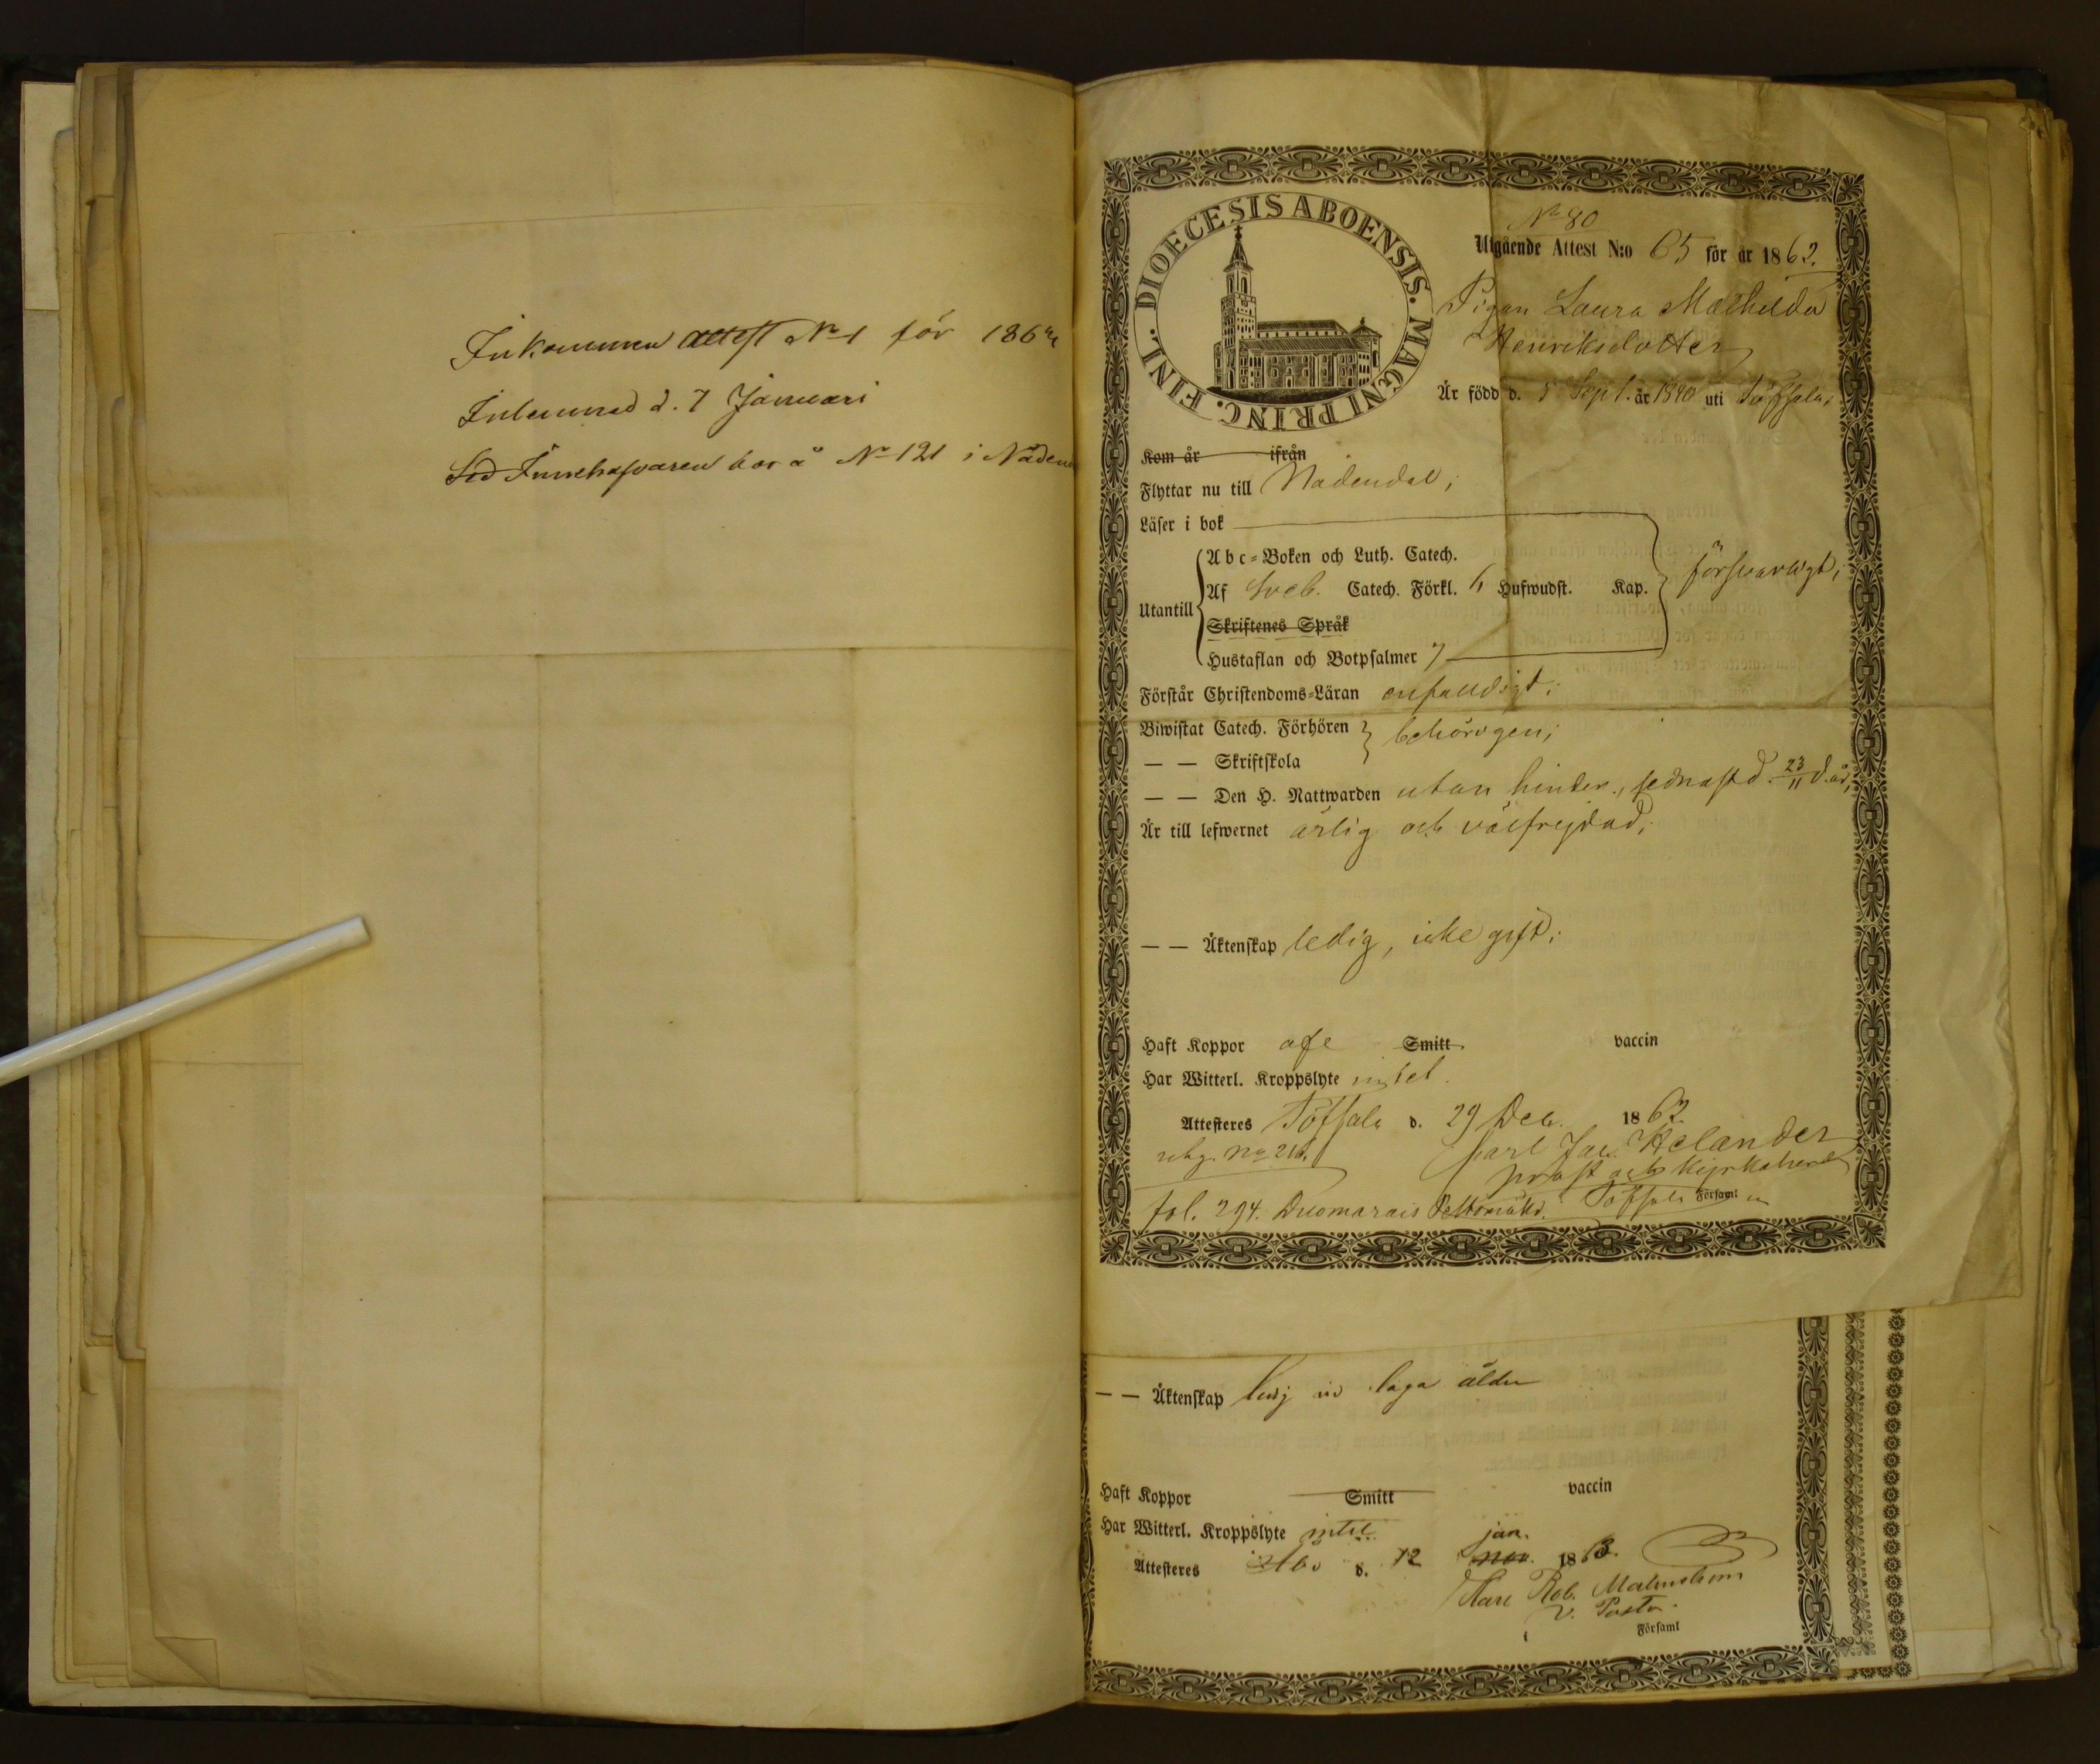 Inkommen attest No 1 för 186
Inlemnad d. 7 Januari
Innehafvaren bor å No 121 i Nådend
DIOECESIS ABOENSIS. MAGNI PRINC. FINL.
No 80
Utgående Attest N:o 65 för år 1862.
Pigan Laura Mathilda
Henriksdotter
Är född d. 5 Sept. år 1840 uti Töfsala;
Kom år ifrån
Flyttar nu till Nådendal;
Läser i bok
Utantill
Abc-Boken och Luth. Catech.
Af Sveb. Catech. Förkl. Hufwudst. Kap.
försvarligt;
Skriftenes Språk
Hustaflan och Botpsalmer 7
Förstår Christendoms-Läran enfaldigt;
Biwistat Catech. Förhören
behörigen;
— — Skriftskola
— — Den H. Nattwarden utan hinder, sednast d. 23/11 d. år;
Är till lefwernet ärlig och välfrejdad;
— — Äktenskap ledig, icke gift;
Haft Koppor afe Smitt vaccin
Har Witterl. Kroppslyte intet.
Attesteres Töfsala d. 29 Dec. 1862
Carl Jac. Helander
prost och kyrkoherde
Töfsala Församl
fol. 294.
— — Äktenskap ledig vid laga ålder
Haft Koppor Smitt vaccin
Har Witterl. Kroppslyte intet
jan.
Attesteres Åbo d. 12 nov. 1863.
Karl Rob. Malmström
v. Pastor.
i Församl